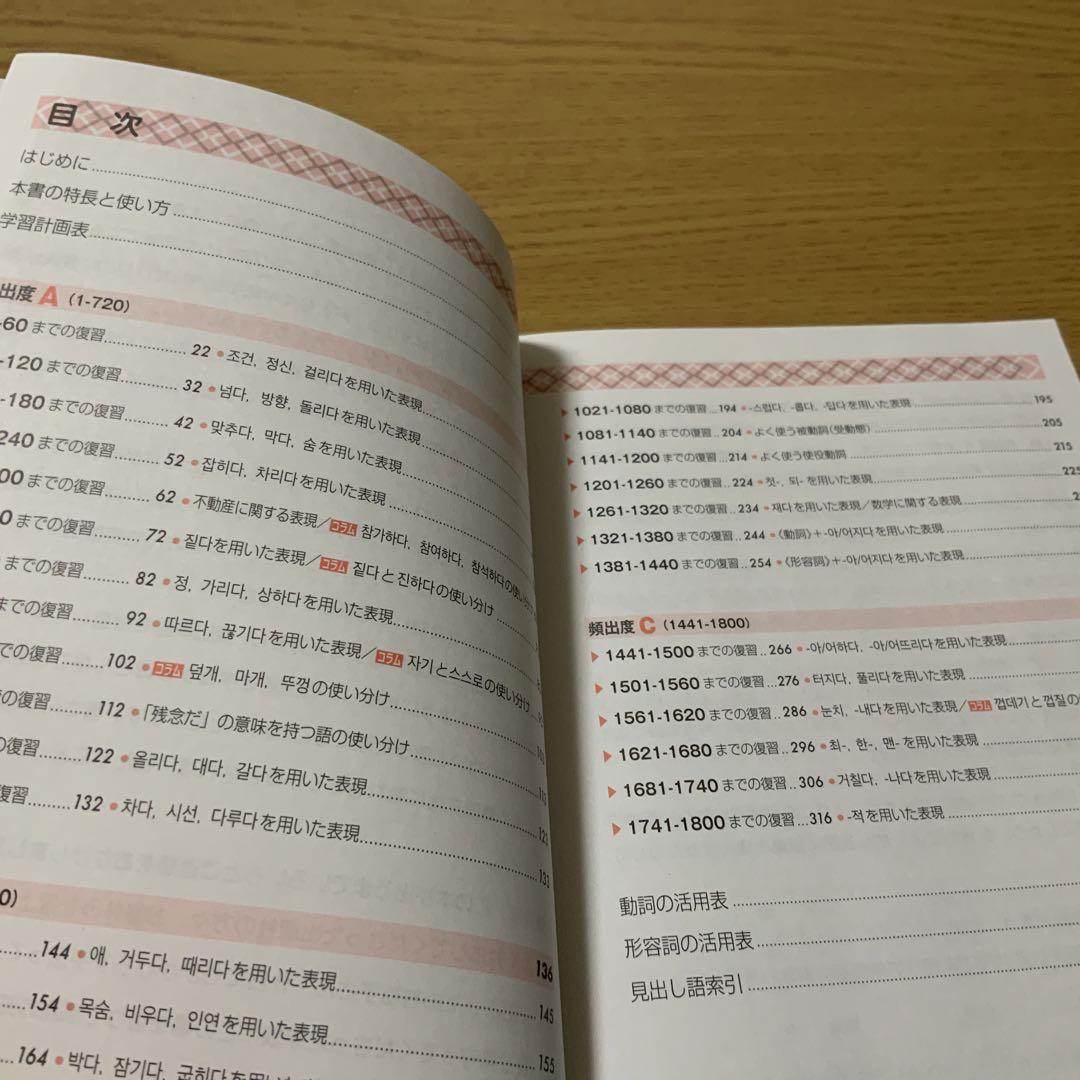 目 次
はじめに
本書の特長と使い方
学習計画表
出度 A (1-720)
-60までの復習 22 ●조건, 정신, 걸리다を用いた表現
-120までの復習 32 ●넘다, 방향, 돌리다を用いた表現
-180までの復習 42 ●맞추다, 막다, 숨を用いた表現
240までの復習 52 ●잡히다, 차리다を用いた表現
00までの復習 62 ●不動産に関する表現／コラム 참가하다, 참여하다, 참석하다の使い分け
0までの復習 72 ●짙다を用いた表現／コラム 짙다と진하다の使い分け
までの復習 82 ●정, 가리다, 상하다を用いた表現
までの復習 92 ●따르다, 끊기다を用いた表現／コラム 자기と스스로の使い分け
での復習 102 ●コラム 덮개, 마개, 뚜껑の使い分け
の復習 112 ●「残念だ」の意味を持つ語の使い分け
の復習 122 ●올리다, 대다, 갈다を用いた表現
復習 132 ●차다, 시선, 다루다を用いた表現 133
0) 136
144 ●애, 거두다, 때리다を用いた表現 145
154 ●목숨, 비우다, 인연を用いた表現 155
164 ●박다, 잠기다, 굽히다を用い
▶ 1021-1080までの復習…194 ●-스럽다, -롭다, -답다を用いた表現 195
▶ 1081-1140までの復習…204 ●よく使う被動詞(受動態) 205
▶ 1141-1200までの復習…214 ●よく使う使役動詞 215
▶ 1201-1260までの復習…224 ●첫-, 되-を用いた表現 225
▶ 1261-1320までの復習…234 ●재다を用いた表現／数学に関する表現
▶ 1321-1380までの復習…244 ●〈動詞〉+-아/어지다を用いた表現
▶ 1381-1440までの復習…254 ●〈形容詞〉+-아/어지다を用いた表現
頻出度 C (1441-1800)
▶ 1441-1500までの復習…266 ●-아/어하다, -아/어뜨리다を用いた表現
▶ 1501-1560までの復習…276 ●터지다, 풀리다を用いた表現
▶ 1561-1620までの復習…286 ●눈치, -내다を用いた表現／コラム 껍데기と껍질の
▶ 1621-1680までの復習…296 ●최-, 한-, 맨-を用いた表現
▶ 1681-1740までの復習…306 ●거칠다, -나다を用いた表現
▶ 1741-1800までの復習…316 ●-적を用いた表現
動詞の活用表
形容詞の活用表
見出し語索引